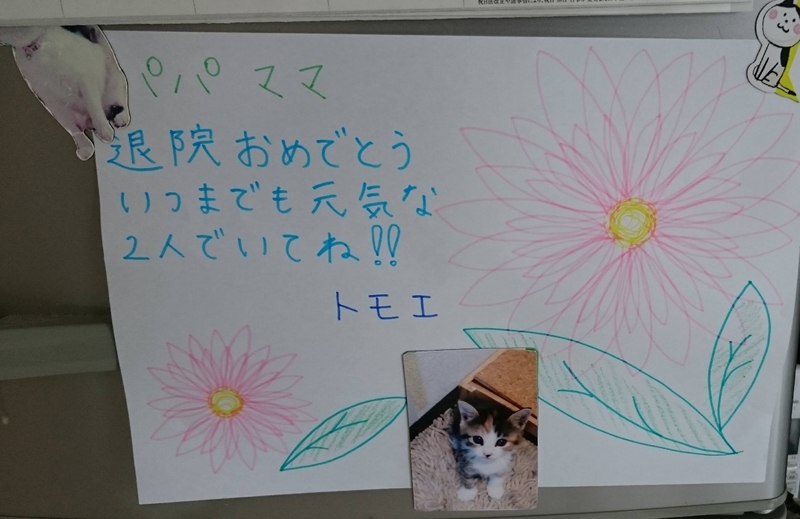 パパ ママ
退院おめでとう
いつまでも元気な
2人でいてね!!
トモエ